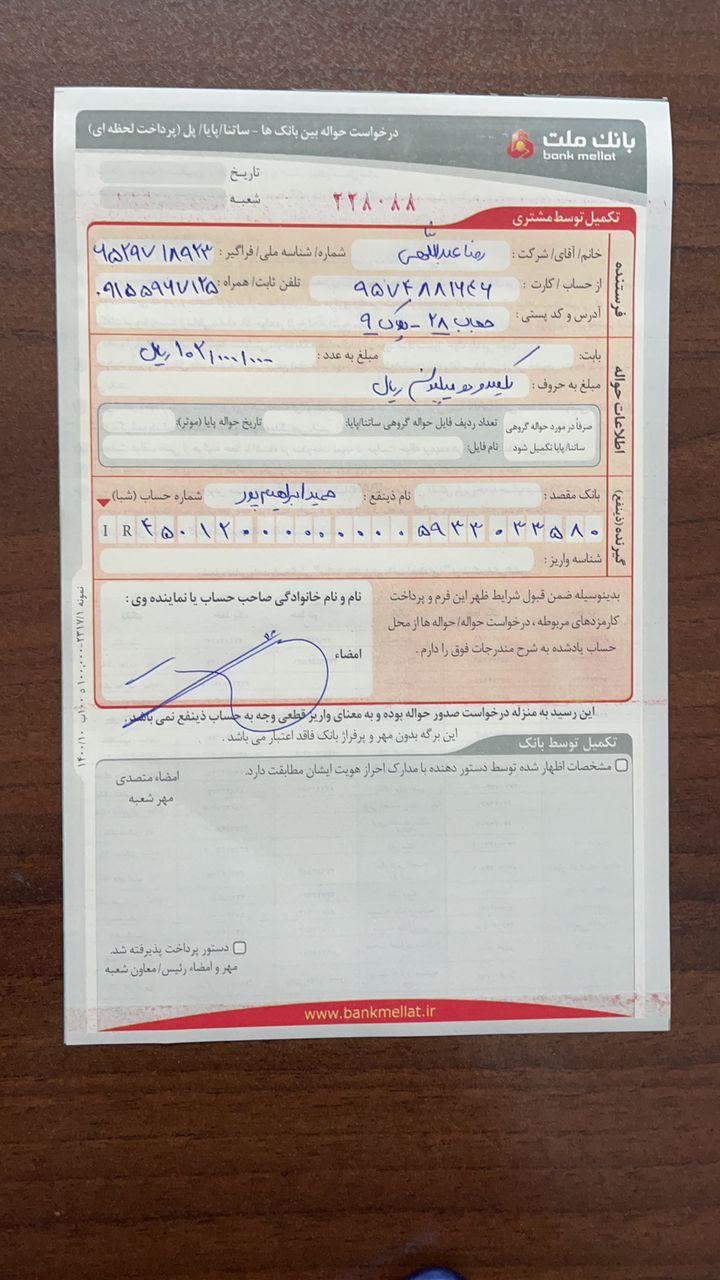 درخواست حواله بین بانک ها - ساتنا/پایا/ پل (پرداخت لحظه ای)
بانک ملت
bank mellat
تاریخ
شعبه
۲۲۸۰۸۸
تکمیل توسط مشتری
فرستنده
خانم/ آقای/ شرکت : رضا عبداللهی شماره/ شناسه ملی/ فراگیر :
از حساب/ کارت : ۹۵۷۴۸۸۱۶۴۶ تلفن ثابت/ همراه : ۰۹۱۵۵۹۶۷۱۲۵
آدرس و کد پستی : ۲۸ - پلاک ۹
اطلاعات حواله
بابت: مبلغ به عدد : ۱۰۲/۰۰۰/۰۰۰ ریال
مبلغ به حروف : یکصد و دو میلیون ریال
صرفاً در مورد حواله گروهی ساتنا/پایا تکمیل شود
تعداد ردیف فایل حواله گروهی ساتنا/پایا: تاریخ حواله پایا (موثر):
نام فایل:
گیرنده (ذینفع)
بانک مقصد : نام ذینفع : حمید ابراهیم پور شماره حساب (شبا)
IR ۴۵۰۱۲۰۰۰۰۰۰۰۰۰۵۹۳۳۰۳۳۵۸۰
شناسه واریز :
بدینوسیله ضمن قبول شرایط ظهر این فرم و پرداخت
کارمزدهای مربوطه ، درخواست حواله/ حواله ها از محل
حساب یادشده به شرح مندرجات فوق را دارم .
نام و نام خانوادگی صاحب حساب یا نماینده وی :
امضاء
این رسید به منزله درخواست صدور حواله بوده و به معنای واریز قطعی وجه به حساب ذینفع نمی باشد.
این برگه بدون مهر و پرفراژ بانک فاقد اعتبار می باشد .
تکمیل توسط بانک
مشخصات اظهار شده توسط دستور دهنده با مدارک احراز هویت ایشان مطابقت دارد.
امضاء متصدی
مهر شعبه
دستور پرداخت پذیرفته شد.
مهر و امضاء رئیس/ معاون شعبه
www.bankmellat.ir